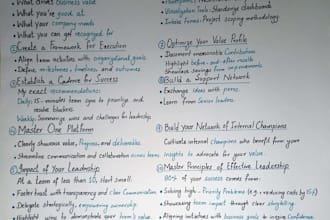 What drives business value
What you're good at
What your company needs
What you can get recognized for
② Create a Framework for Execution
Align team activities with organizational goals.
Define milestones, timelines, and outcomes
③ Establish a Cadence for Success
My exact recommendations:
Daily: 15-minutes team sync to prioritize and resolve blockers
Weekly: Summarize wins and challenges for leadership
④ Master One Platform
Clearly showcase value, Progress, and
Streamline communication and collaboration across teams
⑤ Impact of Your Leadership
At a team of less than 10, start small:
Foster trust with transparency and Clear Communication
Delegate strategically, empowering ownership
Highlight wins to demonstrate your team's value
Visualization Tools: Standardize dashboards
Intake Forms: Project scoping methodology
② Optimize Your Value Profile
Document measurable Contributions
Highlight before-and-after results
Showcase savings from improvements
③ Build a Support Network
Exchange ideas with peers
Learn from Senior leaders
④ Build your Network of Internal Champions
Cultivate internal champions who benefit from your
Insights to advocate for your value
⑤ Master Principles of Effective Leadership
80% of your success comes from:
Solving high-Priority Problems (e.g., reducing costs by 15%)
Showcasing team impact through clear storytelling.
Aligning initiatives with business goals to inspire confidence